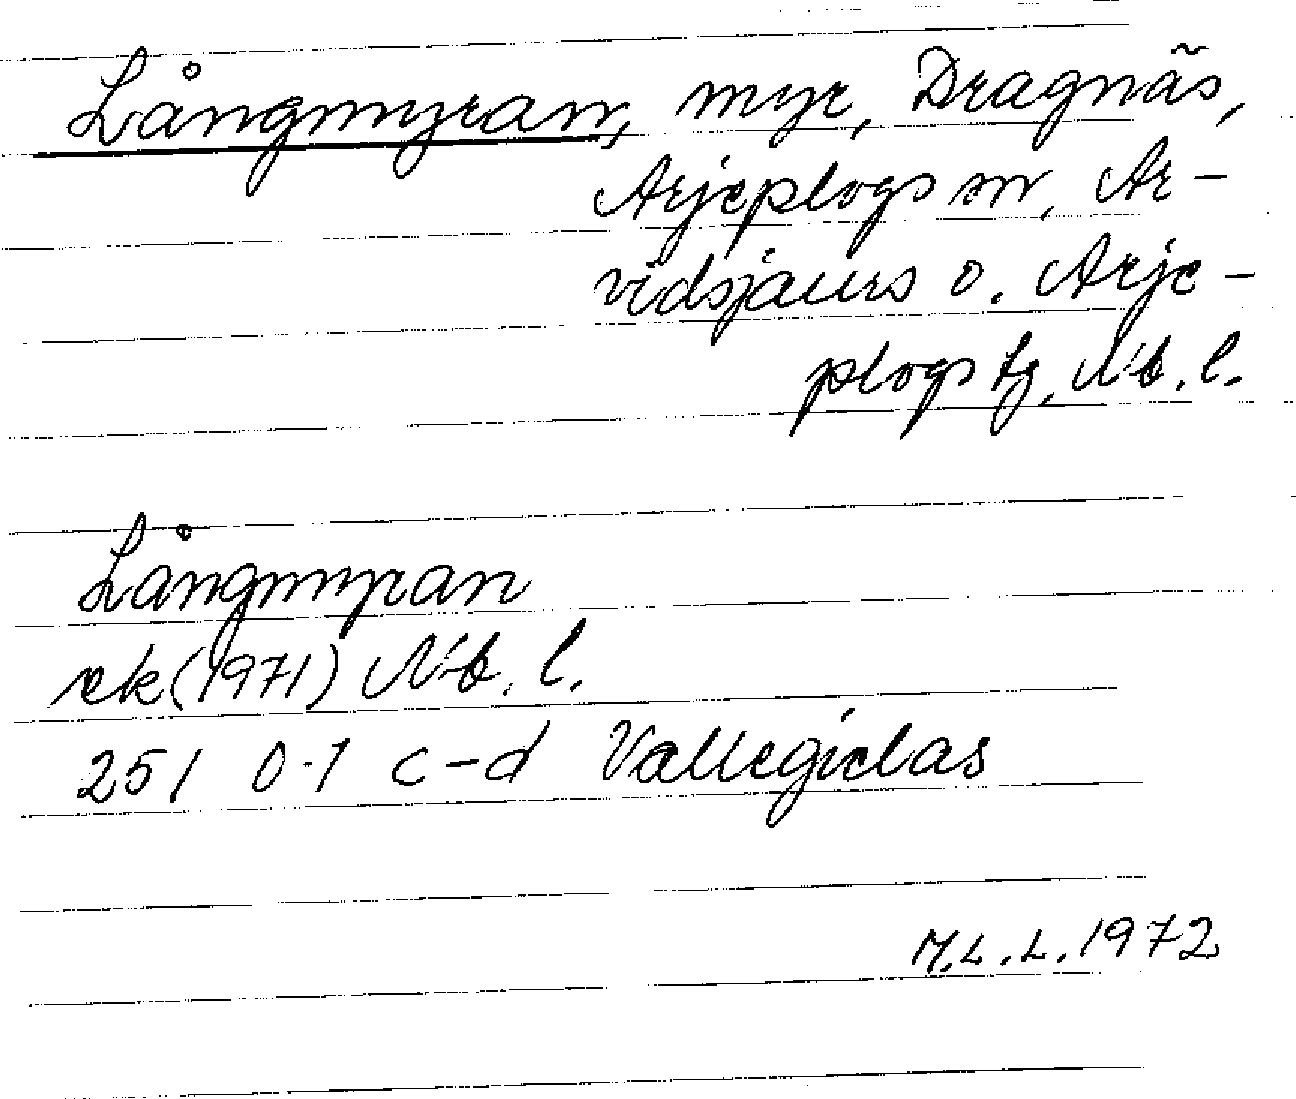 Långmyran, myr, Dragnäs,
Arjeplogs sn, Ar-
vidsjaurs o. Arje-
plogs tg, Nb. l.
Långmyran
rek (1971) Nb. l.
251 0-1 c-d Vallegielas
M.L.L. 1972